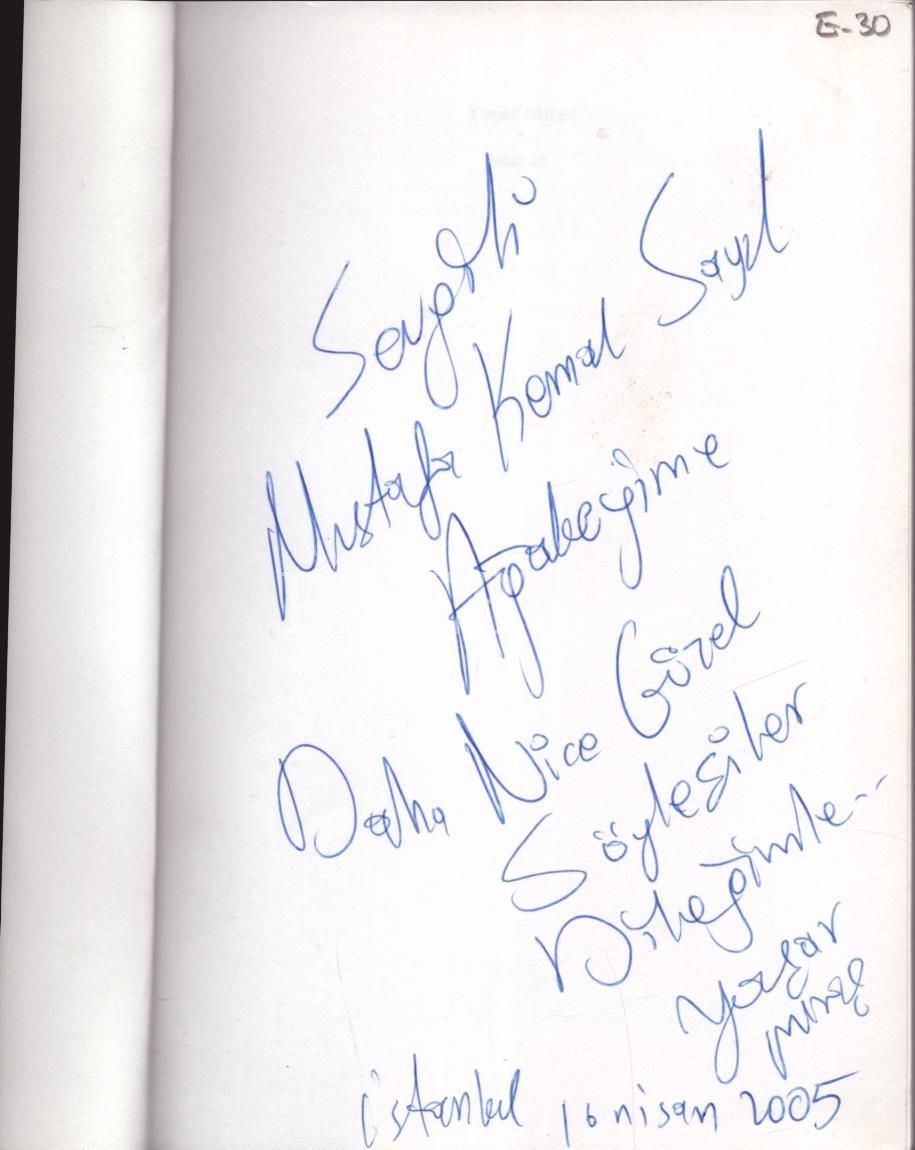 E-30
Sevgili
Mustafa Kemal Sayıl
Ağabeyime
Daha Nice Güzel
Söyleşiler
Dileğimle..
Yaşar
Miraç
istanbul 16 nisan 2005